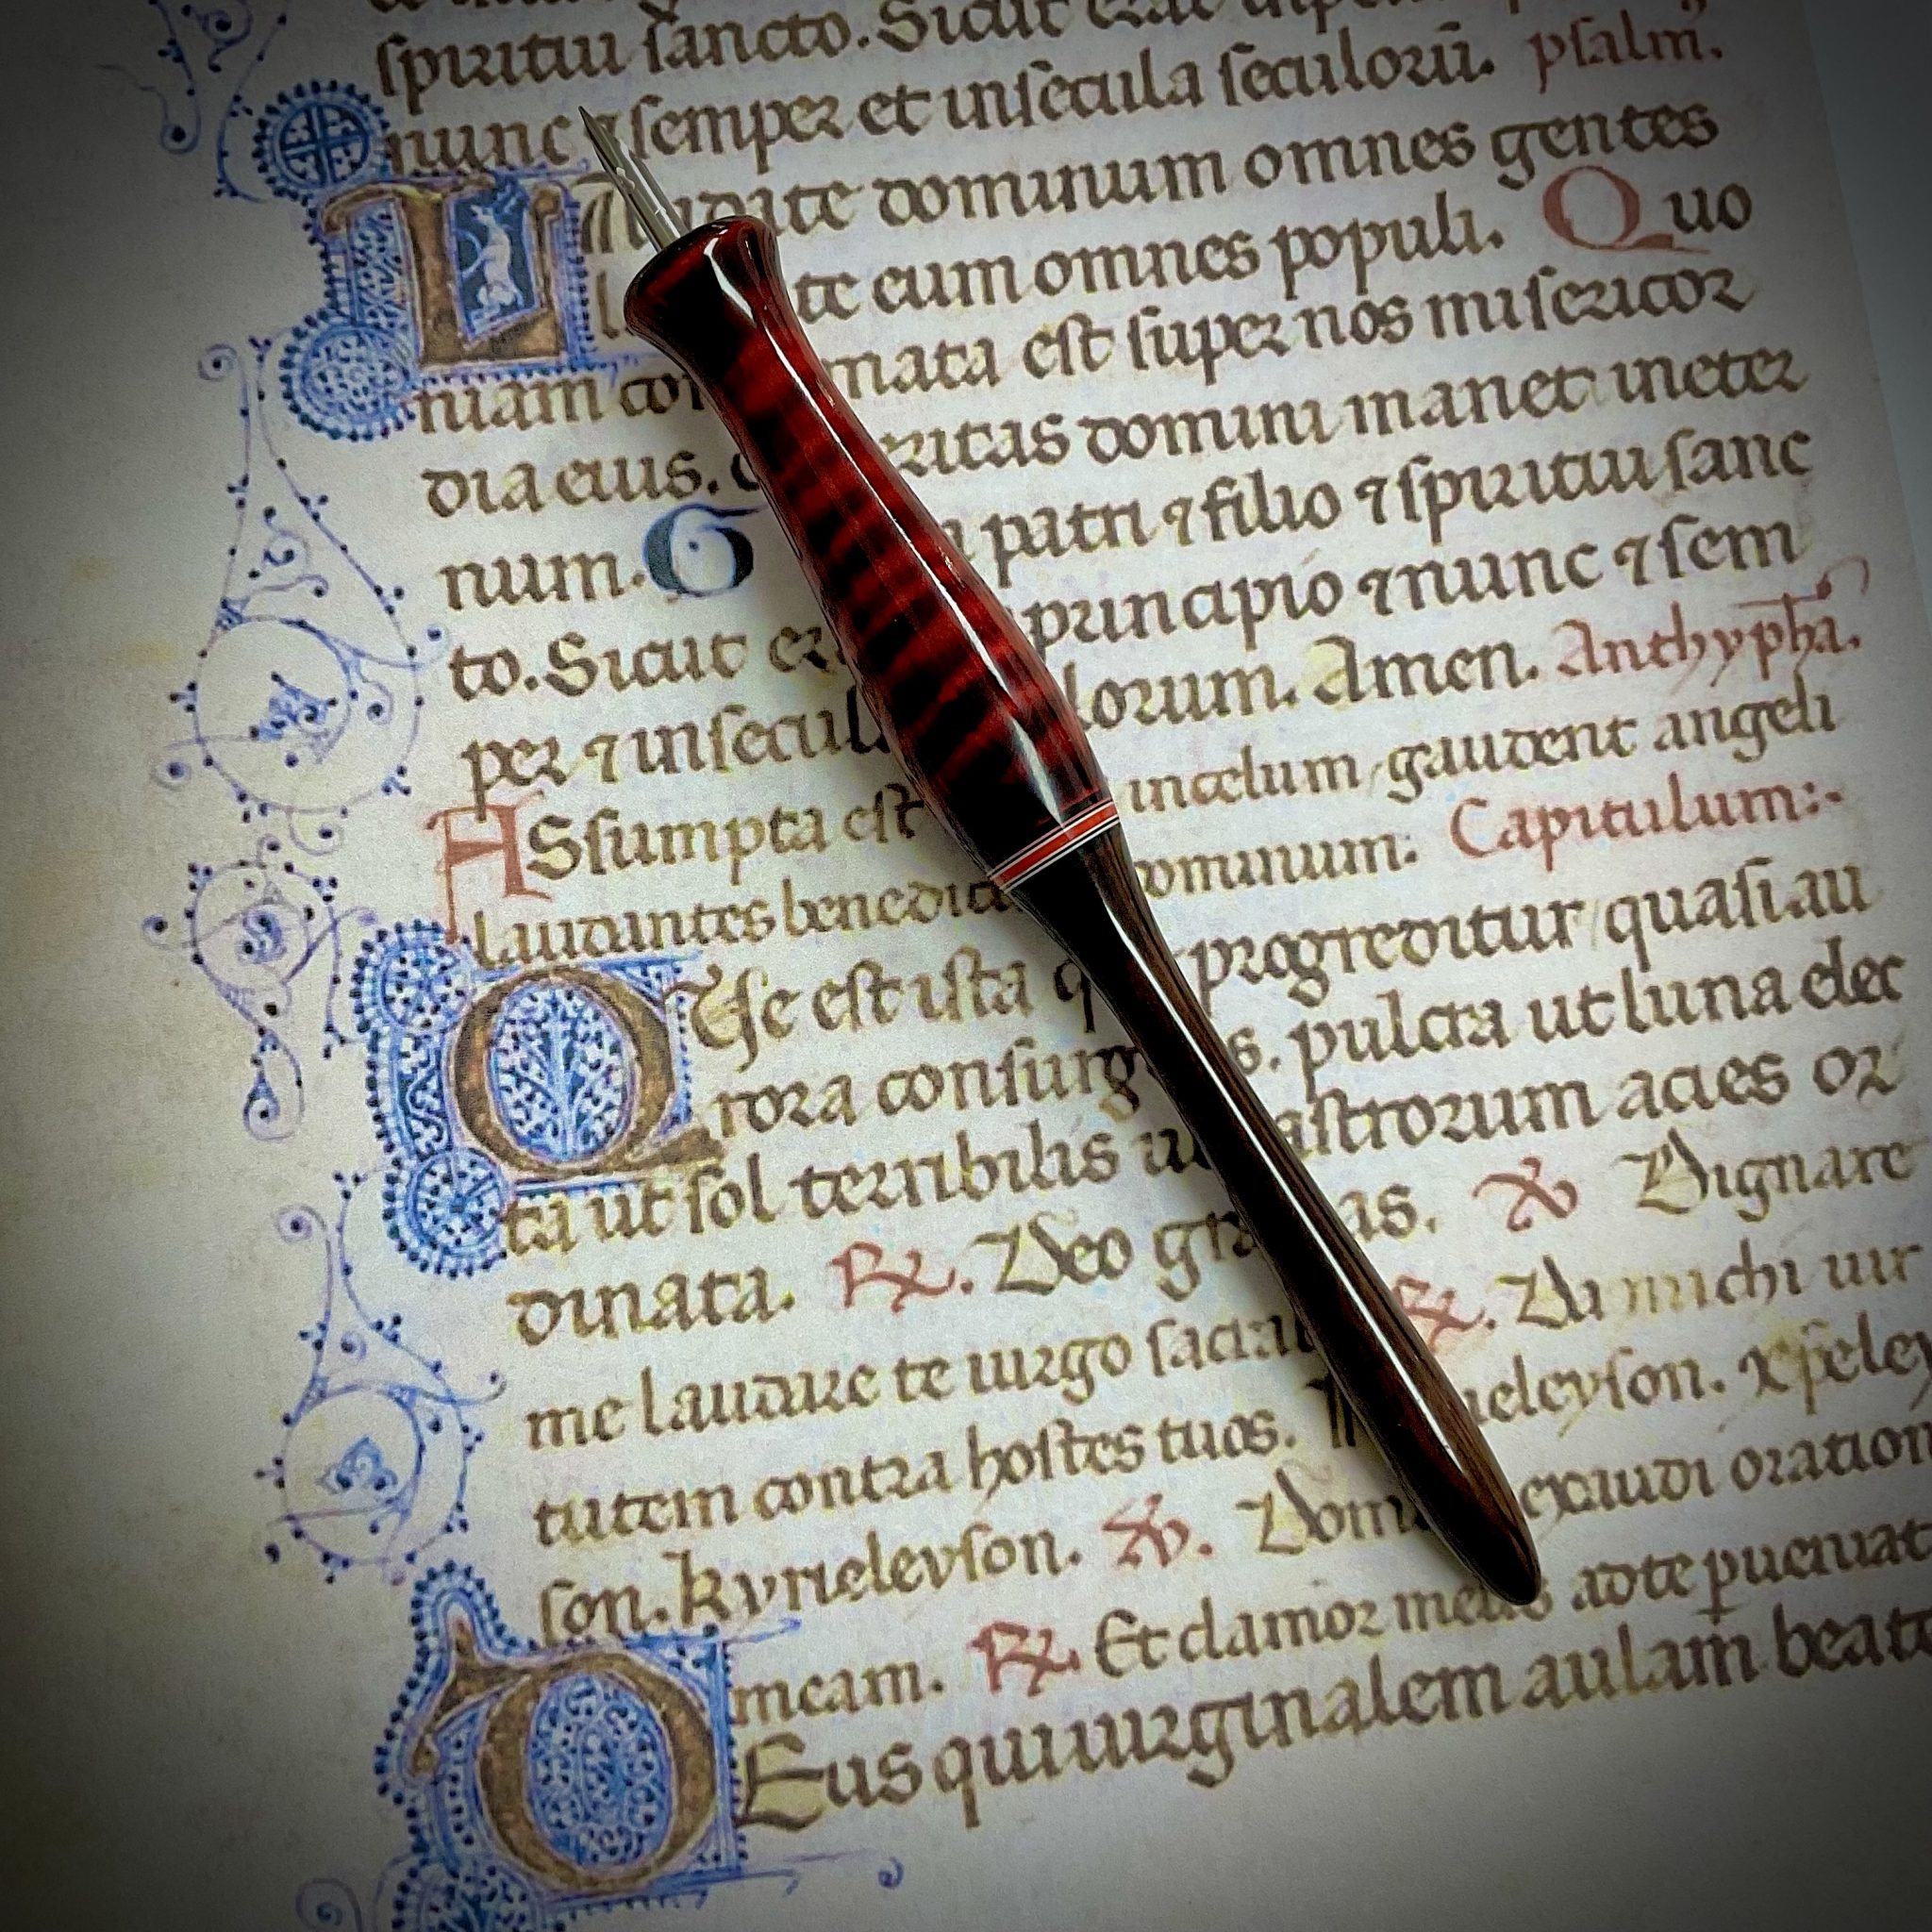 spiritui sancto. Sicut erat
nunc ⁊ semper et insecula seculorū. psalm.
LAudate dominum omnes gentes
eum omnes populi. Quo
niam est super nos misericor
dia eius. domini manet ineter
num. G patri ⁊ filio ⁊ spiritui sanc
to. Sicut principio ⁊ nunc ⁊ sem
per ⁊ insecul lorum. Amen. Anthypha.
ASsumpta est incelum gaudent angeli
laudantes benedic dominum: Capitulum:-
QUe est ista progreditur quasi au
rora consurg s. pulcra ut luna elec
ta ut sol terribilis astrorum acies or
dinata. ℞. Deo gra as. ℣ Dignare
me laudare te uirgo sacrat ℞. Da michi uir
tutem contra hostes tuos. ieleyson. xp̄eley
son. kyrieleyson. ℣. Domi exaudi oration
meam. ℞. Et clamor meus adte pueniat
DEus qui uirginalem aulam beate